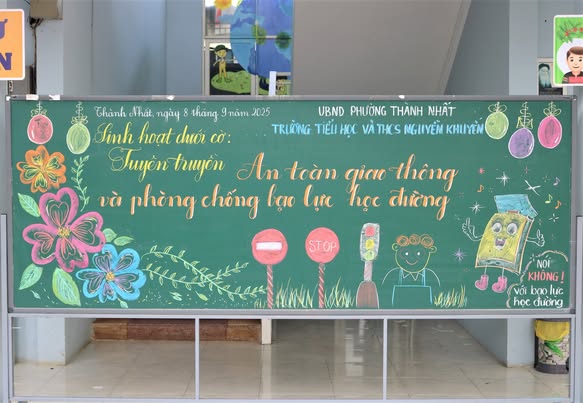 Thành Nhất, ngày 8 tháng 9 năm 2025
UBND PHƯỜNG THÀNH NHẤT
TRƯỜNG TIỂU HỌC VÀ THCS NGUYỄN KHUYẾN
Sinh hoạt dưới cờ:
Tuyên truyền
An toàn giao thông
và phòng chống bạo lực học đường
STOP
NÓI
KHÔNG!
với bạo lực
học đường